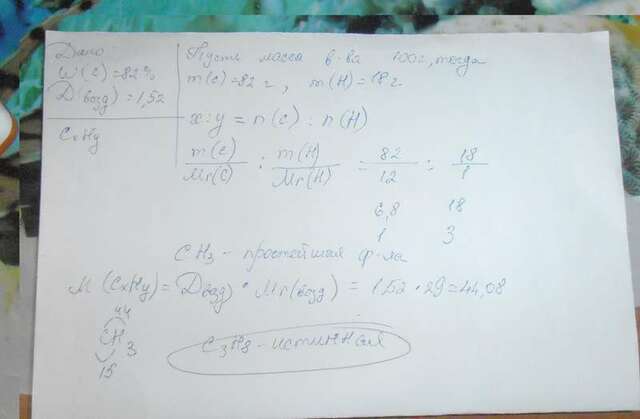 Дано
W(C)=82%
D(возд)=1,52
CxHy
Пусть масса в-ва 100г, тогда
m(C)=82 г, m(H)=18 г.
x:y = n(C) : n(H)
m(C)/Mr(C) : m(H)/Mr(H) = 82/12 : 18/1
6,8 18
1 3
CH3 - простейшая ф-ла
M(CxHy) = Dвозд · Mr(возд) = 1,52 · 29 = 44,08
44
CH3
15
C3H8 - истинная